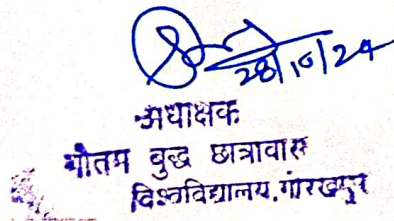 28/10/24
अधीक्षक
गौतम बुद्ध छात्रावास
विश्वविद्यालय, गोरखपुर